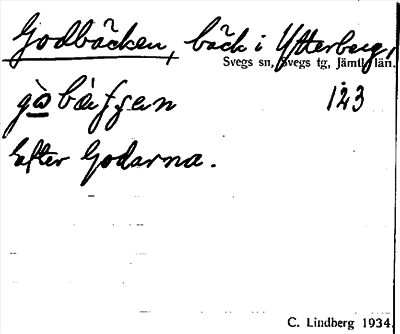 Godbäcken, bäck i Ytterberg,
Svegs sn, Svegs tg, Jämtl. län.
123
Efter Godarna.
C. Lindberg 1934.